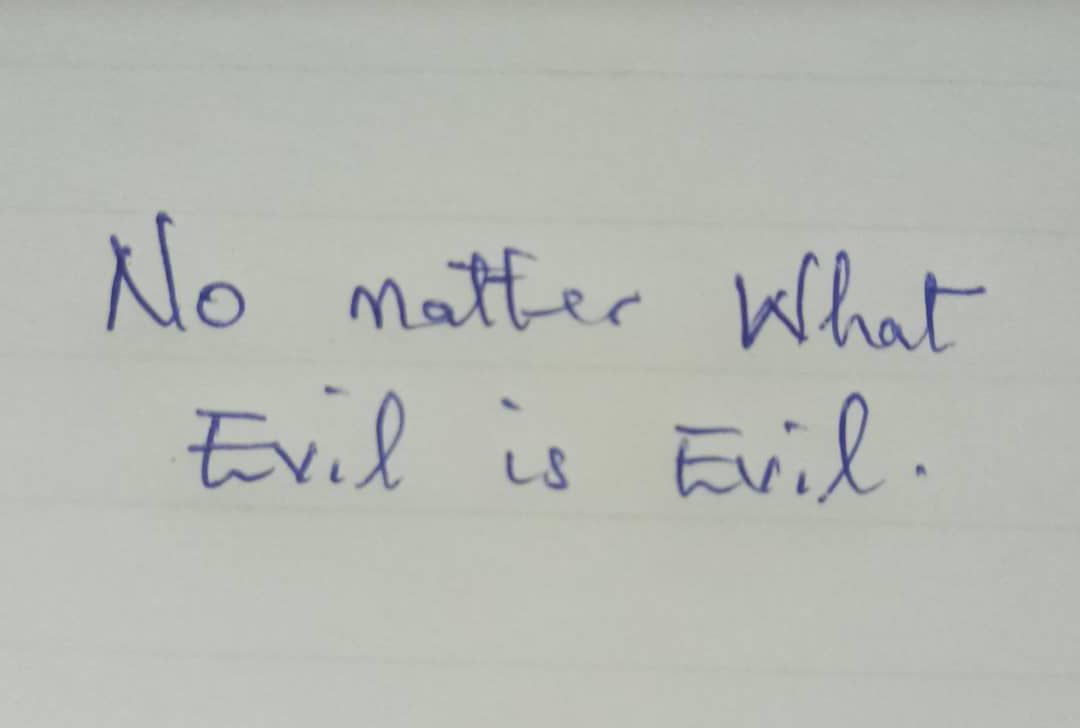 No matter What
Evil is Evil.